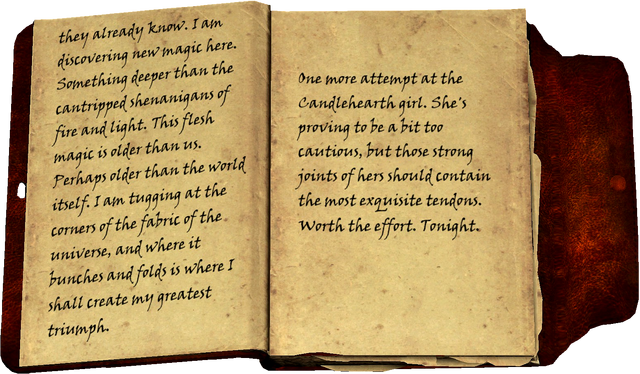 they already know. I am
discovering new magic here.
Something deeper than the
cantripped shenanigans of
fire and light. This flesh
magic is older than us.
Perhaps older than the world
itself. I am tugging at the
corners of the fabric of the
universe, and where it
bunches and folds is where I
shall create my greatest
triumph.
One more attempt at the
Candlehearth girl. She's
proving to be a bit too
cautious, but those strong
joints of hers should contain
the most exquisite tendons.
Worth the effort. Tonight.